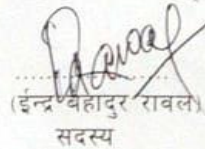 (ईन्द्र बहादुर रावल)
सदस्य